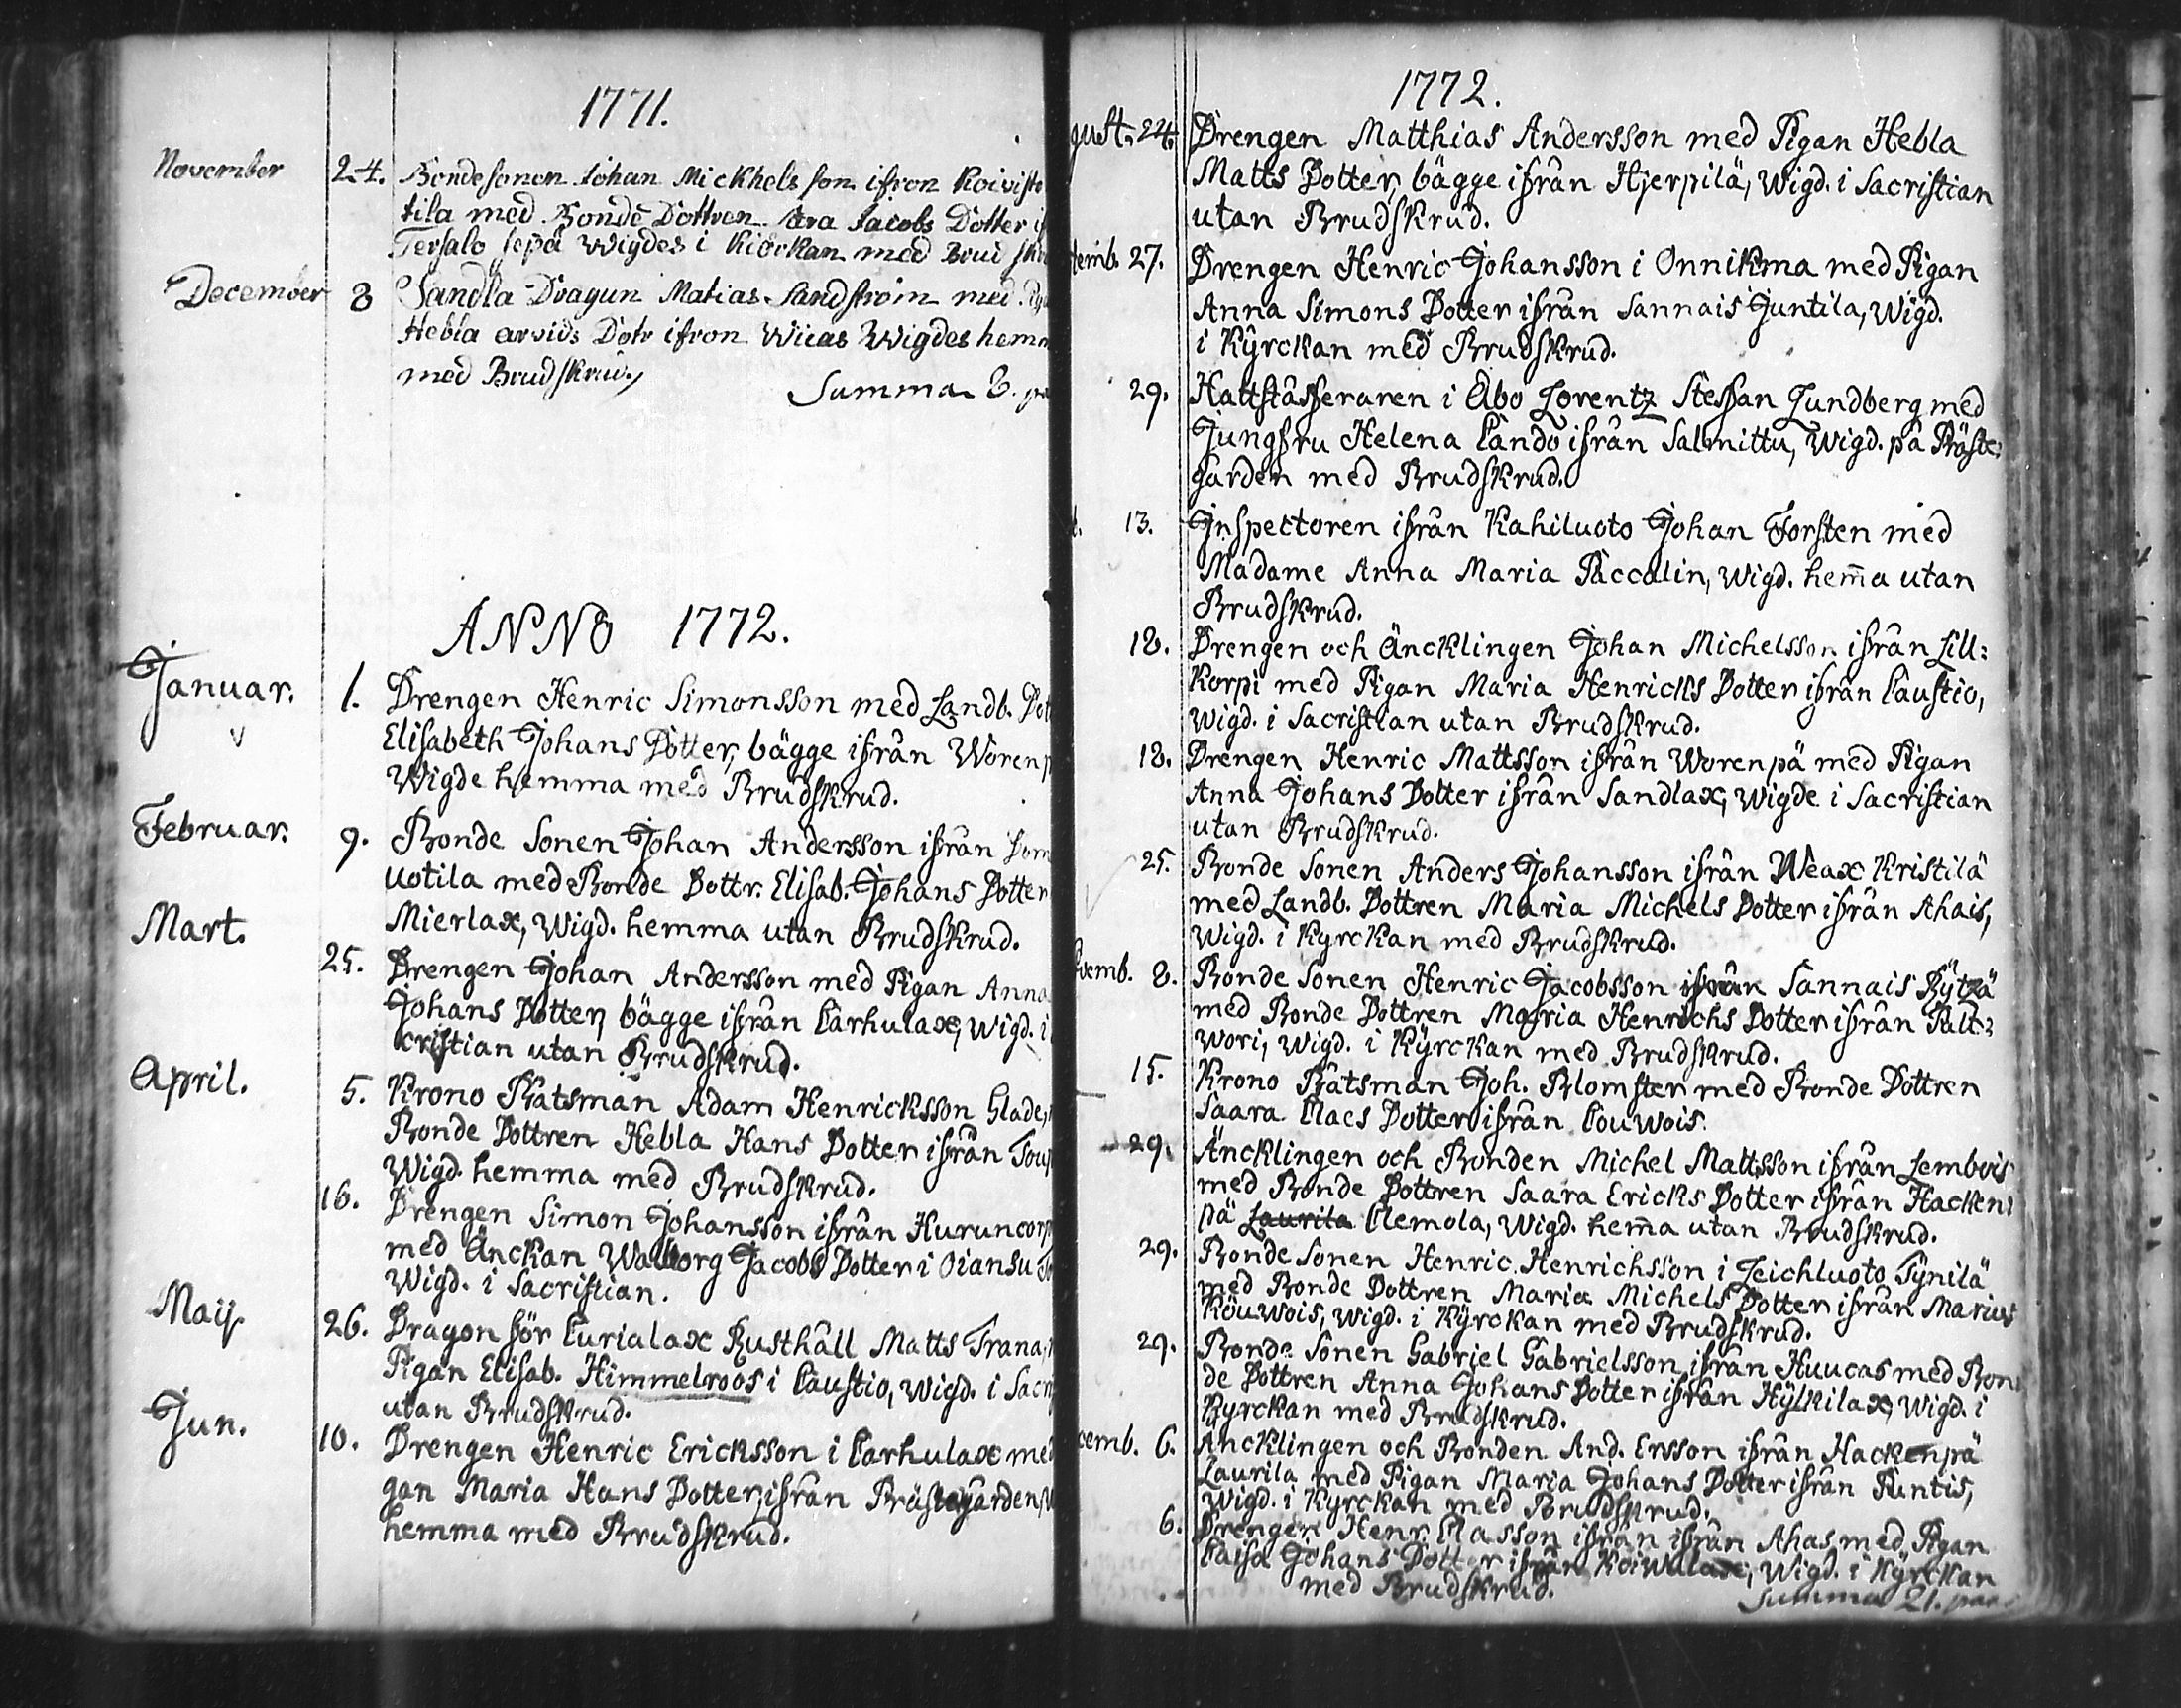 1771.
November 24. Bondesonen Johan Mickhels son ifron Koiviste
tila med Bonde Dottren Jacobs Dotter
Tersalo Wigdes i Kiörkan med Brud
December 8 Sandla Dragun Matias Sandström med
Hebla arvids Dotr ifron Wiias Wigdes hem
med Brudskrud.
Summa 8.
ANNO 1772.
Januar. 1. Drengen Henric Simonsson med Landb. Dot
Elisabeth Johans Dotter, bägge ifrån Woren
Wigde hemma med Brudskrud.
Februar. 9. Bonde Sonen Johan Andersson ifrån Dom
uotila med Bonde Dottr. Elisab. Johans Dotter
Mierlax, Wigd. hemma utan Brudskrud.
Mart. 25. Drengen Johan Andersson med Pigan Anna
Johans Dotter, bägge ifrån Carhulax, Wigd. i
cristian utan Brudskrud.
April. 5. Krono Båtsman Adam Henricksson Glade,
Bonde Dottren Hebla Hans Dotter ifrån Tou
Wigd. hemma med Brudskrud.
16. Drengen Simon Johansson ifrån Huruncorp
med Änckan Walborg Jacobs Dotter i Oiansu
Wigd. i Sacristian.
Maij. 26. Dragon för Curialax Rusthåll Matts Trana,
Pigan Elisab. Himmelroos i Caustio, Wigd. i Sacri
utan Brudskrud.
Jun. 10. Drengen Henric Ericksson i Carhulax med
gan Maria Hans Dotter, ifrån Prästegården,
hemma med Brudskrud.
1772.
gust. 24. Drengen Matthias Andersson med Pigan Hebla
Matts Dotter, bägge ifrån Hjerpilä, Wigd. i Sacristian
utan Brudskrud.
temb. 27. Drengen Henric Johansson i Onnikma med Pigan
Anna Simons Dotter ifrån Sannais Juntila, Wigd.
i Kyrckan med Brudskrud.
29. Hattstafferaren i Åbo Lorentz Steffan Lundberg med
Jungfru Helena Cando ifrån Salmittu, Wigd. på Präste-
gården med Brudskrud.
13. Inspectoren ifrån Kahiluoto Johan Forsten med
Madame Anna Maria Paccalin, Wigd. hem̄a utan
Brudskrud.
18. Drengen och Äncklingen Johan Michelsson ifrån Lill:
Korpi med Pigan Maria Henricks Dotter ifrån Caustio,
Wigd. i Sacristian utan Brudskrud.
18. Drengen Henric Mattsson ifrån Worenpä med Pigan
Anna Johans Dotter ifrån Sandlax, Wigde i Sacristian
utan Brudskrud.
25. Bonde Sonen Anders Johansson ifrån Weax Kristilä
med Landb. Dottren Maria Michels Dotter ifrån Ahais,
Wigd. i Kyrckan med Brudskrud.
vemb. 8. Bonde Sonen Henric Jacobsson ifrån Sannais Rytzä
med Bonde Dottren Maria Henrichs Dotter ifrån Palt:
wori, Wigd. i Kyrckan med Brudskrud.
15. Krono Båtsman Joh. Blomster med Bonde Dottren
Saara Claes Dotter ifrån Couwois.
29. Äncklingen och Bonden Michel Mattsson ifrån Lembois
med Bonde Dottren Saara Ericks Dotter ifrån Hacken:
pä Laurila Clemola, Wigd. hem̄a utan Brudskrud.
29. Bonde Sonen Henric Henrichsson i Leichluoto Tynilä
med Bonde Dottren Maria Michels Dotter ifrån Marius
Kouwois, Wigd. i Kyrckan med Brudskrud.
29. Bonde Sonen Gabriel Gabrielsson ifrån Huucas med Bon
de Dottren Anna Johans Dotter ifrån Hylkilax, Wigd. i
Kyrckan med Brudskrud.
cemb. 6. Äncklingen och Bonden And. Ersson ifrån Hackenpä
Laurila med Pigan Maria Johans Dotter ifrån Puntis,
Wigd. i Kyrckan med Brudskrud.
6. Drengen Henr. Classon ifrån ifrån Ahas med Pigan
Caisa Johans Dotter ifrån Koiwulax, Wigd. i Kyrckan
med Brudskrud.
Summa 21. paar